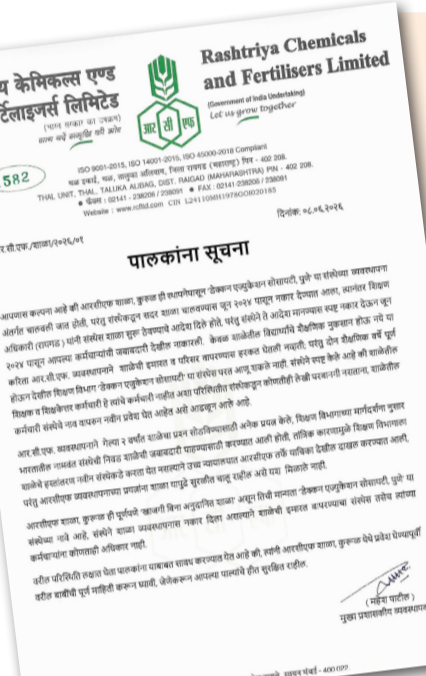 य केमिकल्स एण्ड
र्टिलाइजर्स लिमिटेड
(भारत सरकार का उपक्रम)
साथ बढ़ें समृद्धि की ओर
582
आर सी एफ
Rashtriya Chemicals
and Fertilisers Limited
(Government of India Undertaking)
Let us grow together
ISO 9001-2015, ISO 14001-2015, ISO 45000-2018 Compliant
थळ इकाई, थळ, तालुका अलिबाग, जिला रायगड (महाराष्ट्र) पिन - 402 208.
THAL UNIT, THAL, TALUKA ALIBAG, DIST. RAIGAD (MAHARASHTRA) PIN - 402 208.
फोन : 02141 - 238206 / 238091 ● FAX : 02141-238206 / 238091
Website : www.rcfltd.com CIN L24110MH1978GOI020185
र.सी.एफ./शाळा/२०२६/०१
दिनांक: ०८.०६.२०२६
पालकांना सूचना
आपणास कल्पना आहे की आरसीएफ शाळा, कुरुळ ही स्थापनेपासून 'डेक्कन एज्युकेशन सोसायटी, पुणे' या संस्थेच्या व्यवस्थापना
अंतर्गत चालवली जात होती, परंतु संस्थेकडून सदर शाळा चालवण्यास जून २०२४ पासून नकार देण्यात आला, त्यानंतर शिक्षण
अधिकारी (रायगड) यांनी संस्थेस शाळा सुरू ठेवण्याचे आदेश दिले होते, परंतु संस्थेने ते आदेश मानण्यास स्पष्ट नकार देऊन जून
२०२४ पासून आपल्या कर्मचाऱ्यांची जबाबदारी देखील नाकारली. केवळ शाळेतील विद्यार्थ्यांचे शैक्षणिक नुकसान होऊ नये या
करिता आर.सी.एफ. व्यवस्थापनाने शाळेची इमारत व परिसर वापरण्यास हरकत घेतली नव्हती; परंतु दोन शैक्षणिक वर्षे पूर्ण
होऊन देखील शिक्षण विभाग 'डेक्कन एज्युकेशन सोसायटी' या संस्थेस परत आणू शकले नाही. संस्थेने स्पष्ट केले आहे की शाळेतील
शिक्षक व शिक्षकेत्तर कर्मचारी हे त्यांचे कर्मचारी नाहीत अशा परिस्थितीत संस्थेकडून कोणतीही लेखी परवानगी नसताना, शाळेतील
कर्मचारी संस्थेचे नाव वापरून नवीन प्रवेश घेत आहेत असे आढळून आले आहे.
आर.सी.एफ. व्यवस्थापनाने गेल्या २ वर्षांत शाळेचा प्रश्न सोडविण्यासाठी अनेक प्रयत्न केले, शिक्षण विभागाच्या मार्गदर्शना नुसार
भारतातील नामवंत संस्थेची निवड शाळेची जबाबदारी पाहण्यासाठी करण्यात आली होती, तांत्रिक कारणामुळे शिक्षण विभागाला
शाळेचे हस्तांतरण नवीन संस्थेकडे करता येत नसल्याने उच्च न्यायालयात आरसीएफ तर्फे याचिका देखील दाखल करण्यात आली,
परंतु आरसीएफ व्यवस्थापनाच्या प्रयत्नांना शाळा यापुढे सुरळीत चालू राहील असे यश मिळाले नाही.
आरसीएफ शाळा, कुरुळ ही पूर्णपणे 'खाजगी बिना अनुदानित शाळा' असून तिची मान्यता 'डेक्कन एज्युकेशन सोसायटी, पुणे' या
संस्थेच्या नावे आहे, संस्थेने शाळा व्यवस्थापनास नकार दिला असल्याने शाळेची इमारत वापरण्याचा संस्थेस तसेच त्यांच्या
कर्मचाऱ्यांना कोणताही अधिकार नाही.
वरील परिस्थिती लक्षात घेता पालकांना याबाबत सावध करण्यात येत आहे की, त्यांनी आरसीएफ शाळा, कुरुळ येथे प्रवेश घेण्यापूर्वी
वरील बाबींची पूर्ण माहिती करून घ्यावी, जेणेकरून आपल्या पाल्यांचे हीत सुरक्षित राहील.
( महेश पाटील )
मुख्य प्रशासकीय व्यवस्थापन
मुंबई - 400 022